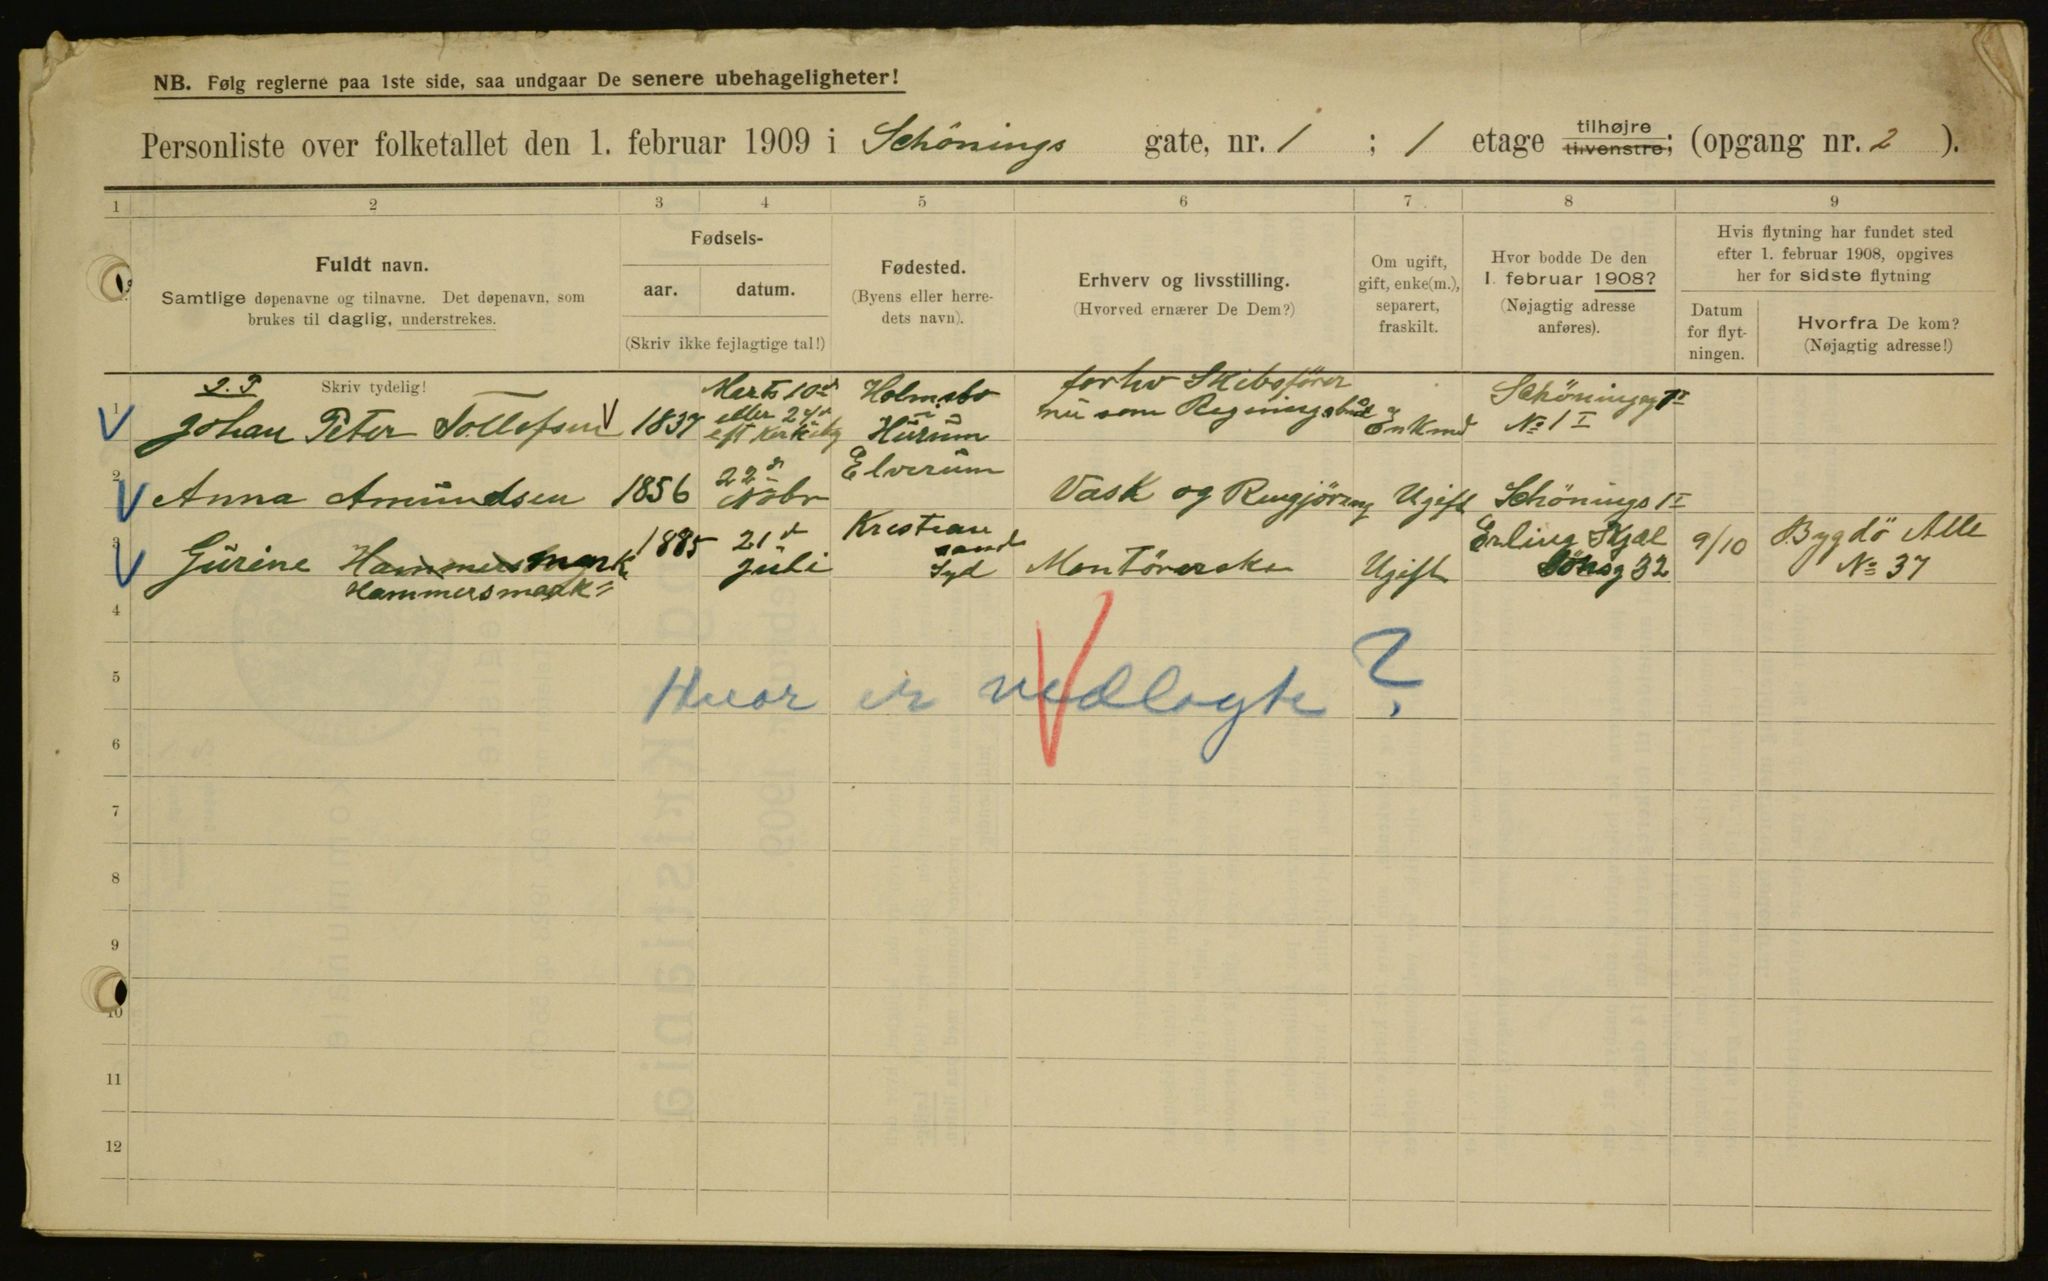 NB. Følg reglerne paa 1ste side, saa undgaar De senere ubehageligheter!
Personliste over folketallet den 1. februar 1909 i Schönings gate, nr. 1 ; 1 etage tilhøjre tilvenstre; (opgang nr. 2 ).
1 2 3 4 5 6 7 8 9
Fuldt navn.
Samtlige døpenavne og tilnavne. Det døpenavn, som
brukes til daglig, understrekes.
Skriv tydelig!
Fødsels-
aar. datum.
(Skriv ikke fejlagtige tal!)
Fødested.
(Byens eller herre-
dets navn).
Erhverv og livsstilling.
(Hvorved ernærer De Dem?)
Om ugift,
gift, enke(m.),
separert,
fraskilt.
Hvor bodde De den
1. februar 1908?
(Nøjagtig adresse
anføres).
Hvis flytning har fundet sted
efter 1. februar 1908, opgives
her for sidste flytning
Datum
for flyt-
ningen.
Hvorfra De kom?
(Nøjagtig adresse!)
1 Johan Peter Tollefsen 1837 Marts 10de eller 24de eft Kirkebg Holmsbo i Hurum forhv Skibsfører nu som Regningsbud Enkmd Schöningsg 1 II No 1 I
2 Anna Amundsen 1856 22de Nobr Elverum Vask og Rengjøring Ugift Schönings 1 I
3 Gurine Hammersmark 1885 21de Juli Krestian sand Syd Montörerske Ugift Erling Skjal sönsg 32 9/10 Bygdö Alle No 37
Hammersmark
4
5
Hvor er vedlagte ?
6
7
8
9
10
11
12